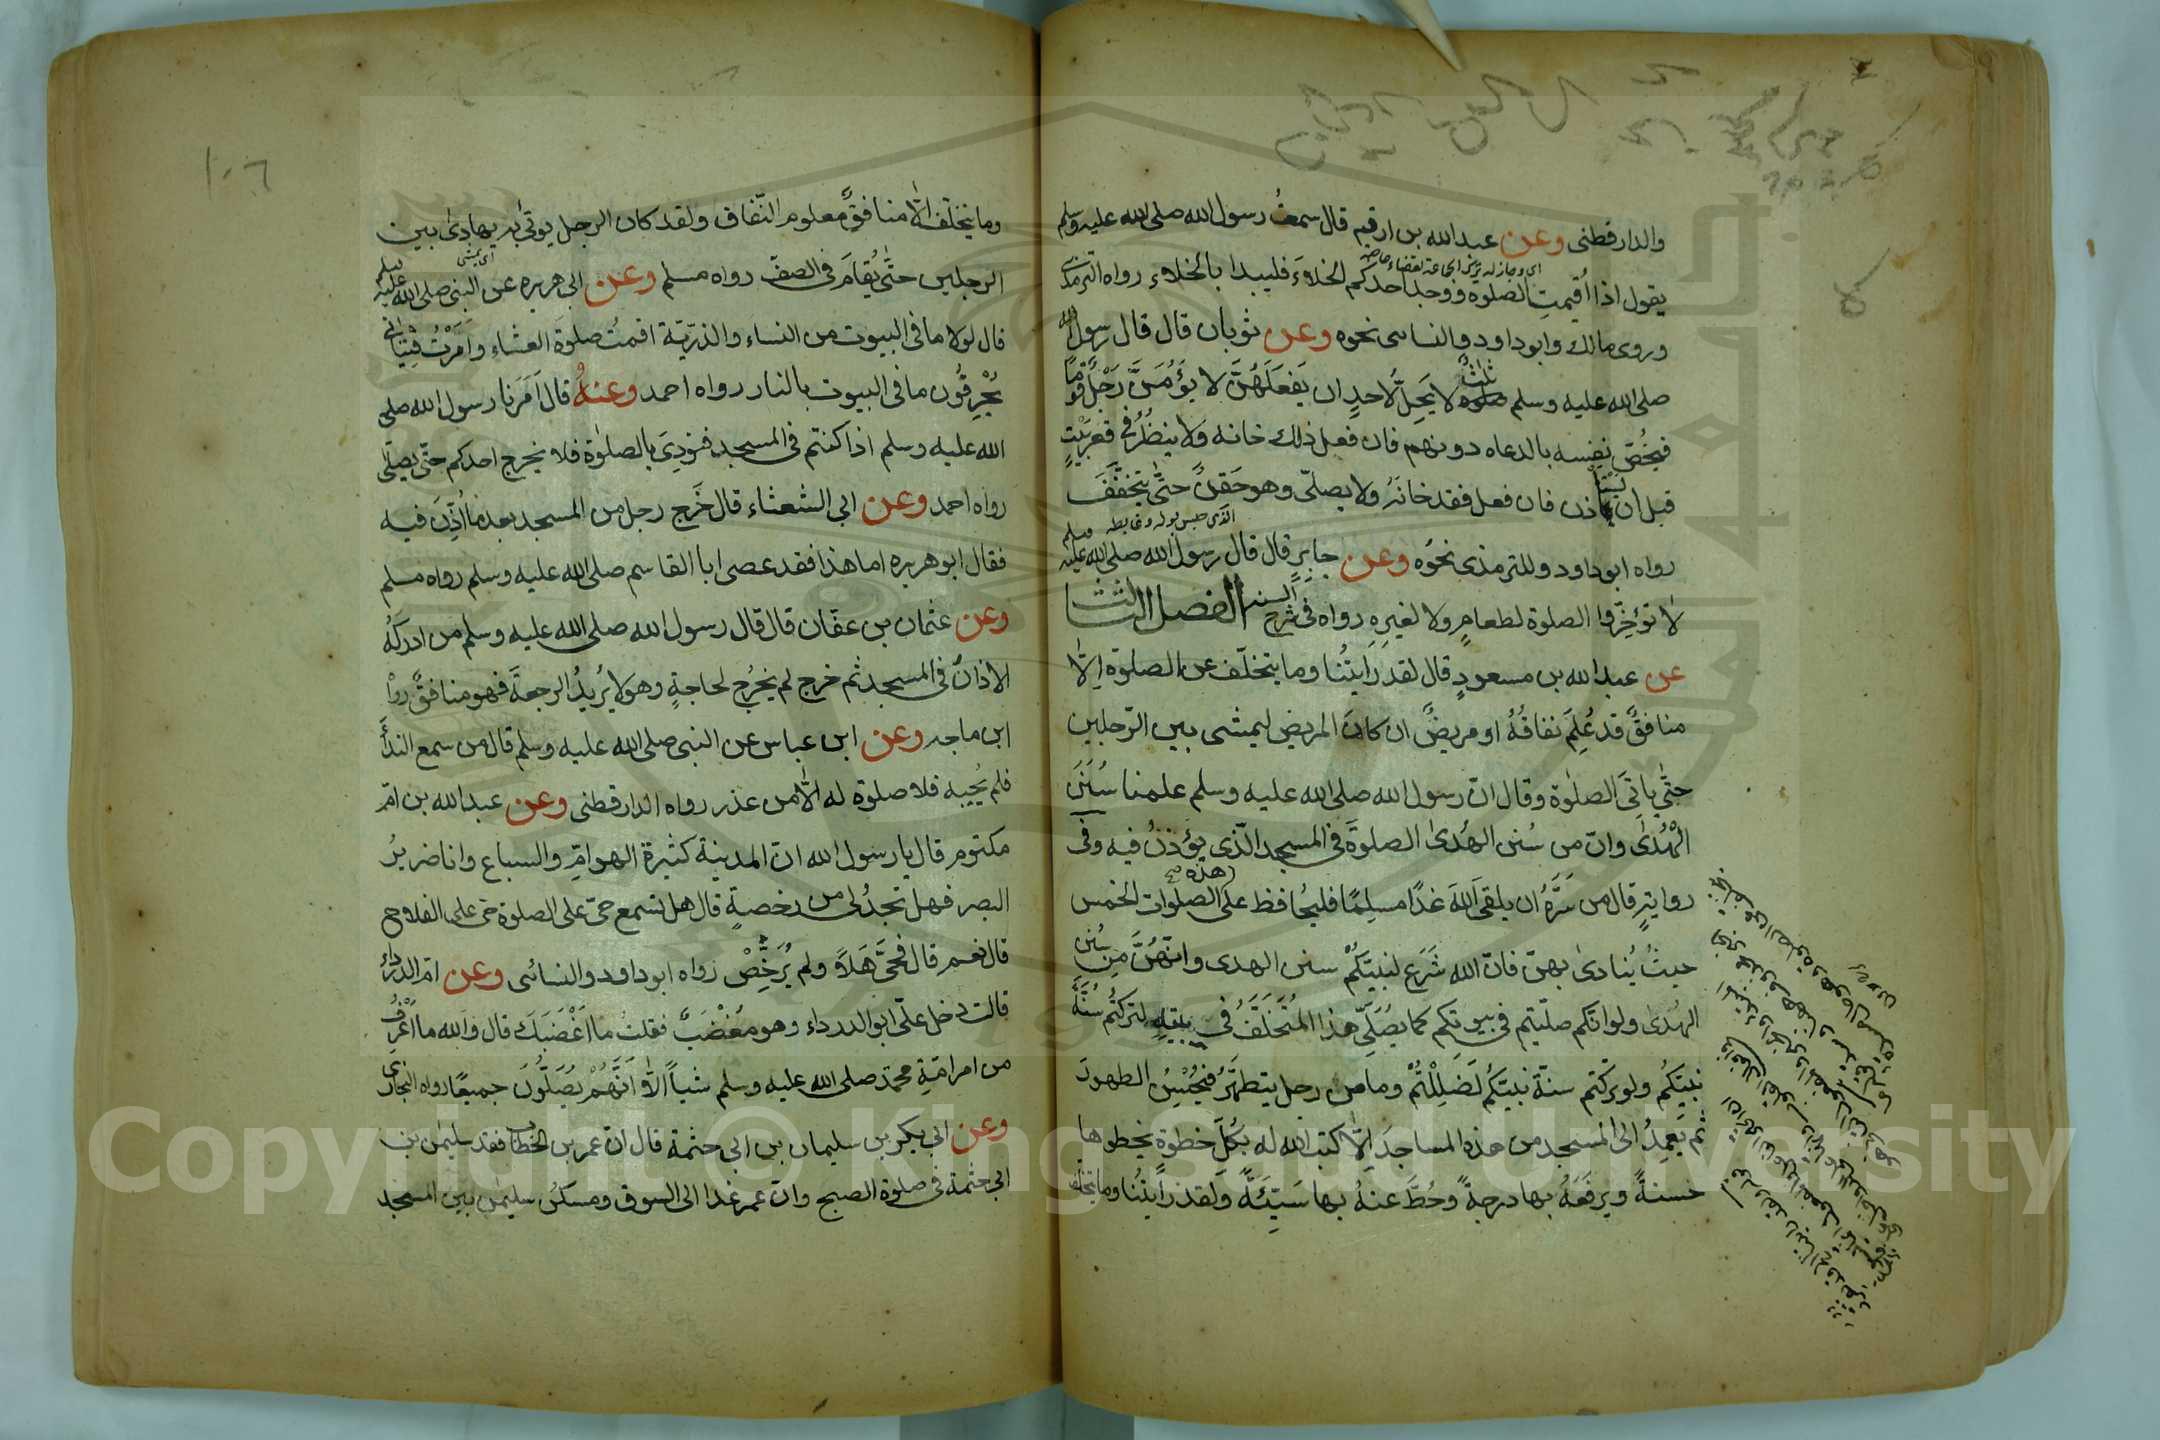 والدارقطنى وعن عبد الله بن ارقم قال سمعتُ رسول الله صلى الله عليه وسلم
يقول اذا اُقيمتِ الصلوة ووجد احدكم الخلاءَ فليبدا بالخلاء رواه الترمذى
وروى مالك وابو داود والنسائى نحوه وعن ثوبان قال قال رسول الله
صلى الله عليه وسلم ثلثٌ لا يَحِلُّ لاحدٍ ان يَفعَلَهُنَّ لا يَؤُمَنَّ رَجُلٌ قومًا
فيَخُصَّ نفسه بالدعاء دونهم فان فعل ذلك خانه ولا ينظُرْ فى قعر بَيْتٍ
قبل ان يستاذن فان فعل فقد خانَهُ ولا يصلّى وهو حَقِنٌ حتّٰى يتخفَّفَ
الذى حبس بوله وغايطه
رواه ابو داود وللترمذى نحوُه وعن جابرٍ قال قال رسول الله صلى الله عليه وسلم
لا تؤخِّروا الصلوة لطعامٍ ولا لغيرِهِ رواه فى شرح السنة الفصل الثالث
عن عبد الله بن مسعودٍ قال لقد رَاَيتُنا وما يتخلّف عن الصلوة اِلّا
منافقٌ قد عُلِمَ نفاقُهُ او مريضٌ ان كانَ المريض ليمشى بين الرّجلين
حتّٰى ياتِىَ الصلٰوة وقال انّ رسول الله صلى الله عليه وسلم علمنا سُنَنَ
الْهُدٰى وانّ من سُنن الهُدىٰ الصلوةَ فى المسجد الّذى يؤذنُ فيه وفى
روايةٍ قال من سَرَّهُ ان يلقى اللهَ غدًا مسلِمًا فليُحافظ على هذه الصلوات الخمس
حيثُ يُنادىٰ بهنّ فانّ الله شَرَعَ لنبيّكُمْ سنن الهدى وانّهُنَّ مِن سُنن
الهُدى ولو انّكم صلّيتم فى بيوتِكم كما يصُلّى هذا المُتَخَلِّفُ فى بيته لتركتُم سُنَّةَ
نبيّكُم ولو تركتم سنّة نبيّكُم لَضَلِلْتُمْ وما من رجل يتطهّرُ فيُحْسِنُ الطهورَ
ثم يَعمِدُ الى المسجد من هذه المساجدَ اِلّا كتب الله له بكُلّ خطوة يخطوها
حسنةً ويرفَعَهُ بها درجةً وحُطَّ عنهُ بها سَيّئةً وَلقد رَاَيتُنا وما يتخلّف
١٠٦
وما يتخلّف الّا منافقٌ معلوم النّفاق ولقد كان الرجل يوتىٰ به يهادىٰ بين
الرجلين حتّٰى يُقامَ فى الصفّ رواه مسلم وعن ابى هريره عن النبى صلى الله عليه وسلم
قال لولا ما فى البيوت من النساء والذرّيّة اقمتُ صلوةَ العشاء واَمَرْتُ فِتْيانى
يُحْرِقُون ما فى البيوت بالنار رواه احمد وعنهُ قال اَمَرَنا رسول الله صلى
الله عليه وسلم اذا كنتم فى المسجد فنودِىَ بالصلٰوة فلا يخرج احدكم حتّى يصلّى
رواه احمد وعن ابى الشعثاء قال خَرج رجل من المسجد بعد ما اُذِّنَ فيه
فقال ابو هريره اما هذا فقد عصى ابا القاسم صلى الله عليه وسلم رواه مسلم
وعن عثمان بن عفّان قال قال رسول الله صلى الله عليه وسلم من ادركهُ
الاذانُ فى المسجد ثم خرج لم يَخرُج لحاجةٍ وهو لا يُرِيدُ الرجعةَ فهو منافقٌ رواه
ابن ماجه وعن ابن عباس عن النبى صلى الله عليه وسلم قال من سمع النداَ
فلم يُجِبه فلا صلوة له الّا من عذر رواه الدارقطنى وعن عبد الله بن امّ
مكتومٍ قال يا رسول الله انّ المدينة كثيرة الهوامّ والسباع وانا ضريرُ
البصر فهل تجدُ لى من رخصةٍ قال هل تسمع حىّ على الصلوة حىّ على الفلاح
قال نعم قال فَحَىَّ هَلًا ولم يُرَخِّصْ رواه ابو داود والنسائى وعن امّ الدرداء
قالت دخل علىّ ابو الدرداء وهو مُغْضَبٌ فقلت ما اَغْضَبَكَ قال والله ما اَعْرِفُ
من امر امّةِ محمّد صلى الله عليه وسلم شياً الّا اَنَّهُمْ يُصَلُّونَ جميعًا رواه البخارى
وعن ابى بكر بن سليمان بن ابى حثمة قال انّ عمر بن الخطاب فقد سليمٰن بن
ابى حثمة فى صلوة الصبح وانّ عمر غدا الى السوق ومسكنُ سليمٰن بين المسجد
Copyright © King Saud University